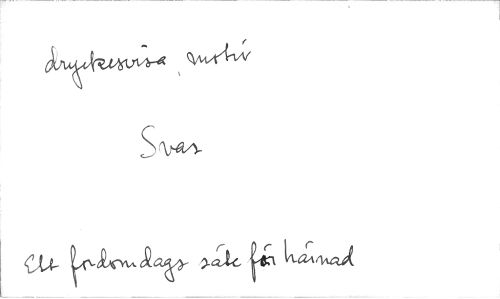 dryckesvisa, motiv
Svar
Ett fordomdags säte för härnad